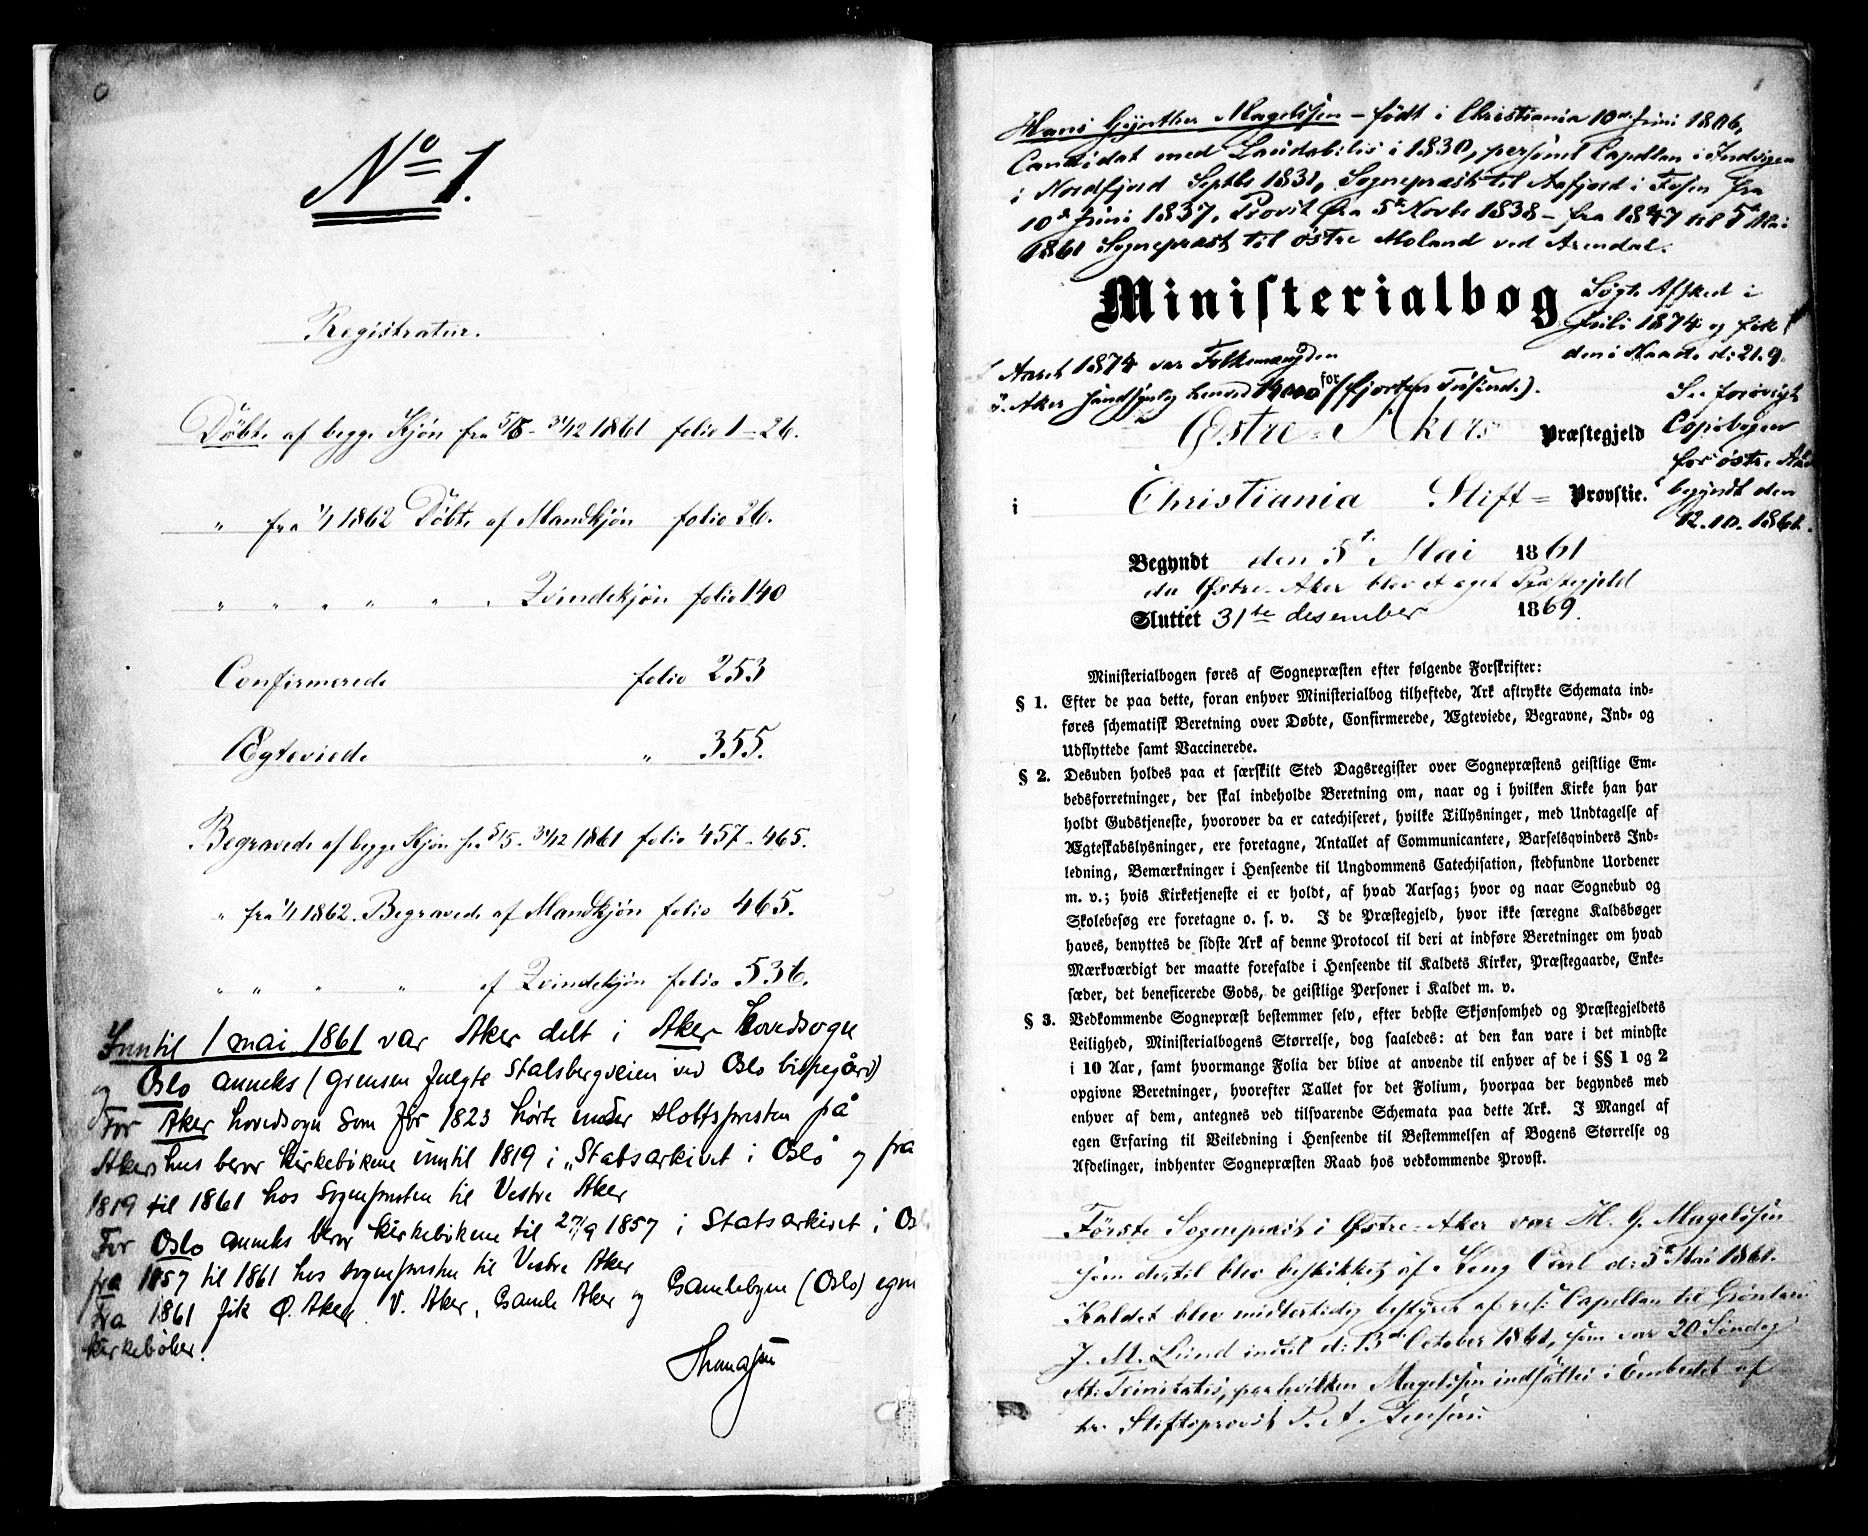 0
No 1.
Registratur.
Døbte af begge Kjøn fra 5/5 - 31/12 1861 folio 1-26.
" fra 1/1 1862 Døbte af Mandkjøn folio 26.
" " " " " " Qvindekjøn folio 140
Confirmerede folio 253
Ægteviede " 355.
Begravede af begge Kjøn fra 5/5 - 31/12 1861 folio 457-465.
" fra 1/1 1862. Begravede af Mandkjøn folio 465.
" " " " af Qvindekjøn folio 536.
Inntil 1 mai 1861 var Aker delt i Aker hovedsogn
og Oslo anneks (grensen fulgte Stalsbergveien ved Oslo bispegård)
For Aker hovedsogn som før 1823 hørte under slottspresten på
Akershus beror kirkebøkene inntil 1819 i "Statsarkivet i Oslo" og fra
1819 til 1861 hos sognepresten til Vestre Aker
For Oslo anneks beror kirkebøkene til 27/9 1857 i Statsarkivet i Oslo
fra 1857 til 1861 hos sognepresten til Vestre Aker
Fra 1861 fik Ø. Aker, V. Aker, Gamle Aker og Gamlebyen (Oslo) egne
kirkebøker.
1
Hans Gynther Magelssen - født i Christiania 10de Juni 1806,
Candidat med Laudabilis i 1830, personel Capellan i Indvigen
i Nordfjord Septbr 1831, Sognepræst til Aafjord i Fosen fra
10de Juni 1837, Provst fra 5te Novbr 1838 - fra 1847 til 5te Mai
1861 Sognepræst til Østre Moland ved Arendal.
Ministerialbog
Søgte Afsked i
Juli 1874 og fik
den i Naade d: 21.9.
I Aaret 1874 var Folkemængden
i Ø. Aker sandsynlig henved 14000 for (fjorten Tusinde).
Østre-Akers Præstegjeld
See forøvrigt
Copiebogen
for østre Aker
begyndt den
12.10.1861.
i Christiania Stift = Provstie.
Begyndt den 5te Mai 1861
da Østre-Aker blev et eget Præstegjeld
Sluttet 31te desember 1869.
Ministerialbogen føres af Sognepræsten efter følgende Forskrifter:
§ 1. Efter de paa dette, foran enhver Ministerialbog tilheftede, Ark aftrykte Schemata ind-
føres schematisk Beretning over Døbte, Confirmerede, Ægteviede, Begravne, Ind- og
Udflyttede samt Vaccinerede.
§ 2. Desuden holdes paa et særskilt Sted Dagsregister over Sognepræstens geistlige Em-
bedsforretninger, der skal indeholde Beretning om, naar og i hvilken Kirke han har
holdt Gudstjeneste, hvorover da er catechiseret, hvilke Tillysninger, med Undtagelse af
Ægteskabslysninger, ere foretagne, Antallet af Communicantere, Barselqvinders Ind-
ledning, Bemærkninger i Henseende til Ungdommens Catechisation, stedfundne Uordener
m. v.; hvis Kirketjeneste ei er holdt, af hvad Aarsag; hvor og naar Sognebud og
Skolebesøg ere foretagne o. s. v. I de Præstegjeld, hvor ikke særegne Kaldsbøger
haves, benyttes de sidste Ark af denne Protocol til deri at indføre Beretninger om hvad
Mærkværdigt der maatte forefalde i Henseende til Kaldets Kirker, Præstegaarde, Enke-
sæder, det beneficerede Gods, de geistlige Personer i Kaldet m. v.
§ 3. Vedkommende Sognepræst bestemmer selv, efter bedste Skjønsomhed og Præstegjeldets
Leilighed, Ministerialbogens Størrelse, dog saaledes: at den kan vare i det mindste
i 10 Aar, samt hvormange Folia der blive at anvende til enhver af de i §§ 1 og 2
opgivne Beretninger, hvorefter Tallet for det Folium, hvorpaa der begyndes med
enhver af dem, antegnes ved tilsvarende Schemata paa dette Ark. I Mangel af
egen Erfaring til Veiledning i Henseende til Bestemmelsen af Bogens Størrelse og
Afdelinger, indhenter Sognepræsten Raad hos vedkommende Provst.
Første Sognepræst i Østre-Aker var H. G. Magelssen
som dertil blev beskikket af Kong Carl d: 5te Mai 1861.
Kaldet blev midlertidig bestyret af res: Capellan til Grønland
J. M. Lund indtil d: 13de October 1861, som var 20 Søndag
efter Trinitatis, paa hvilken Magelssen indsattes i Embedet af
hr. Stiftsprovst P. A. Jensen.